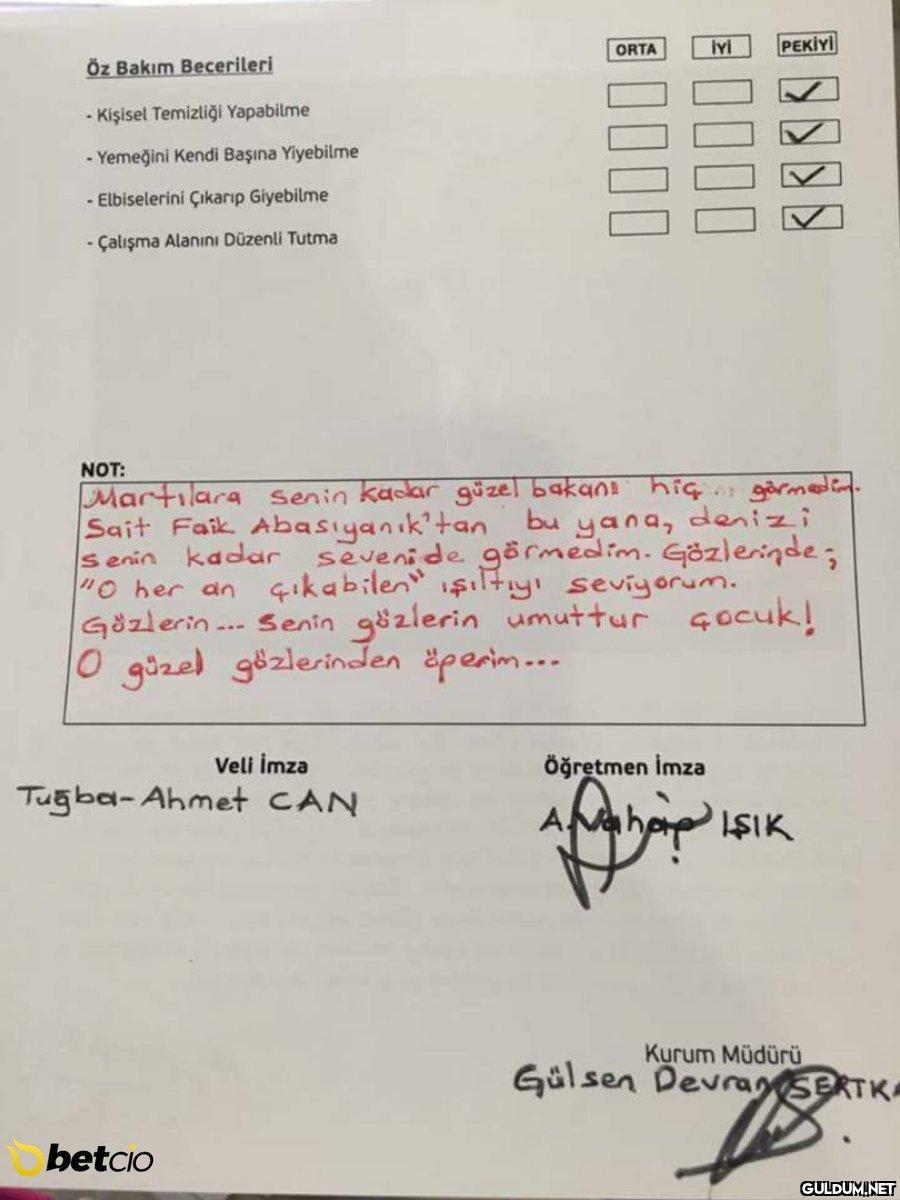 Öz Bakım Becerileri
ORTA İYİ PEKİYİ
- Kişisel Temizliği Yapabilme
- Yemeğini Kendi Başına Yiyebilme
- Elbiselerini Çıkarıp Giyebilme
- Çalışma Alanını Düzenli Tutma
NOT:
Martılara senin kadar güzel bakanı hiç... görmedim.
Sait Faik Abasıyanık'tan bu yana, denizi
senin kadar seveni de görmedim. Gözlerinde;
"O her an çıkabilen" ışıltıyı seviyorum.
Gözlerin... senin gözlerin umuttur çocuk!
O güzel gözlerinden öperim...
Veli İmza Öğretmen İmza
Tuğba-Ahmet CAN A.Vahap IŞIK
Kurum Müdürü
Gülsen Devran SERTKA
betcio
GULDUM.NET